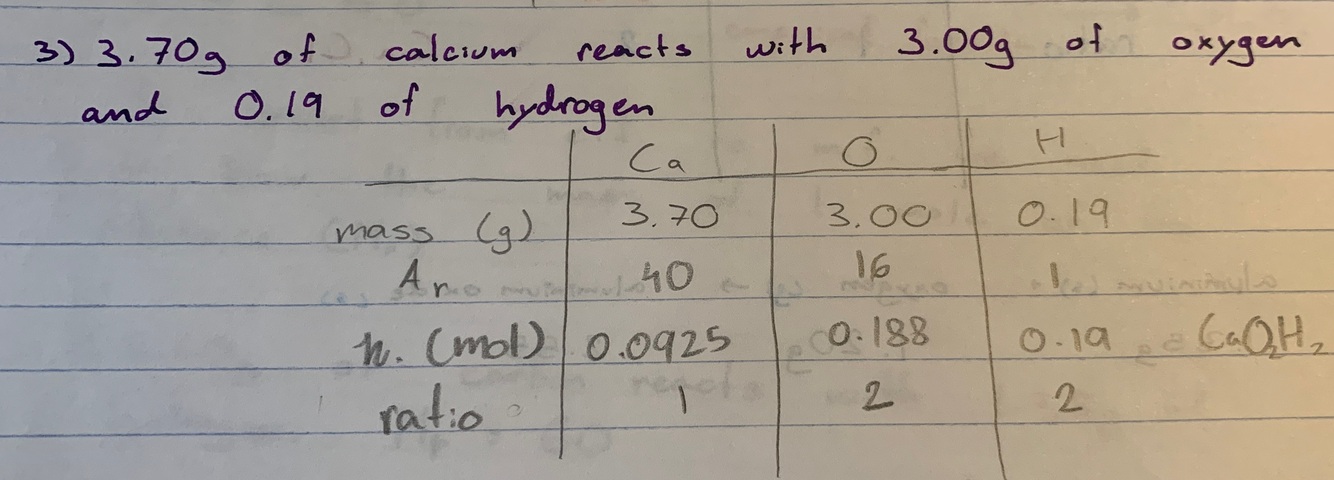 3) 3.70g of calcium reacts with 3.00g of oxygen
and 0.19 of hydrogen
Ca O H
mass (g) 3.70 3.00 0.19
Ar 40 16 1
n. (mol) 0.0925 0.188 0.19 CaO₂H₂
ratio 1 2 2